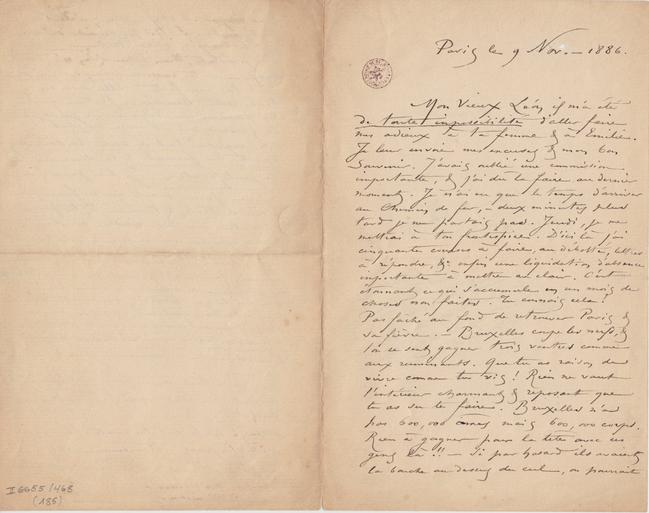 Paris le 9 Nov. — 1886.
Mon Vieux Léon il m'a été
de toute impossibilité d'aller faire
mes adieux à ta femme & à Emilie.
Je leur envoie mes excuses & mon bon
Souvenir. J'avais oublié une commission
importante & j'ai dû la faire au dernier
moment. Je n'ai eu que le temps d'arriver
au chemin de fer, — deux minutes plus
tard je ne partais pas. Jeudi, je me
mettrai à ton frontispice. D'ici là j'ai
cinquante courses à faire, au débotté, lettres
à répondre, & enfin une liquidation d'absence
importante à mettre au clair. C'est
étonnant ce qui s'accumule en un mois de
choses non faites. Tu connais cela !
Pas faché au fond de retrouver Paris &
sa fièvre. — Bruxelles coupe les nerfs, &
l'on se sent gagner trois ventres comme
aux ruminants. Que tu as raison de
vivre comme tu vis ! Rien ne vaut
l'intérieur charmant & reposant que
tu as su te faire. Bruxelles n'a
pas 600,000 âmes mais 600,000 corps.
Rien à gagner pour la tête avec ces
gens là !! — Si par hasard ils avaient
la bouche au dessus du cul, on pourrait
II 6655/468
(185)